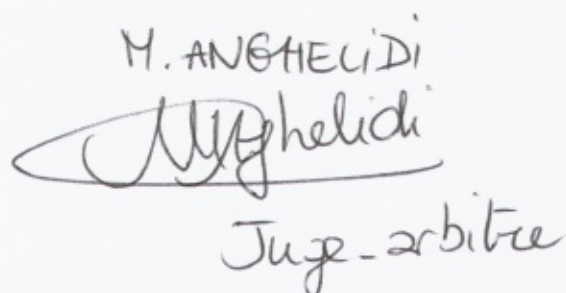 M. ANGHELiDi
MAnghelidi
Juge-arbitre